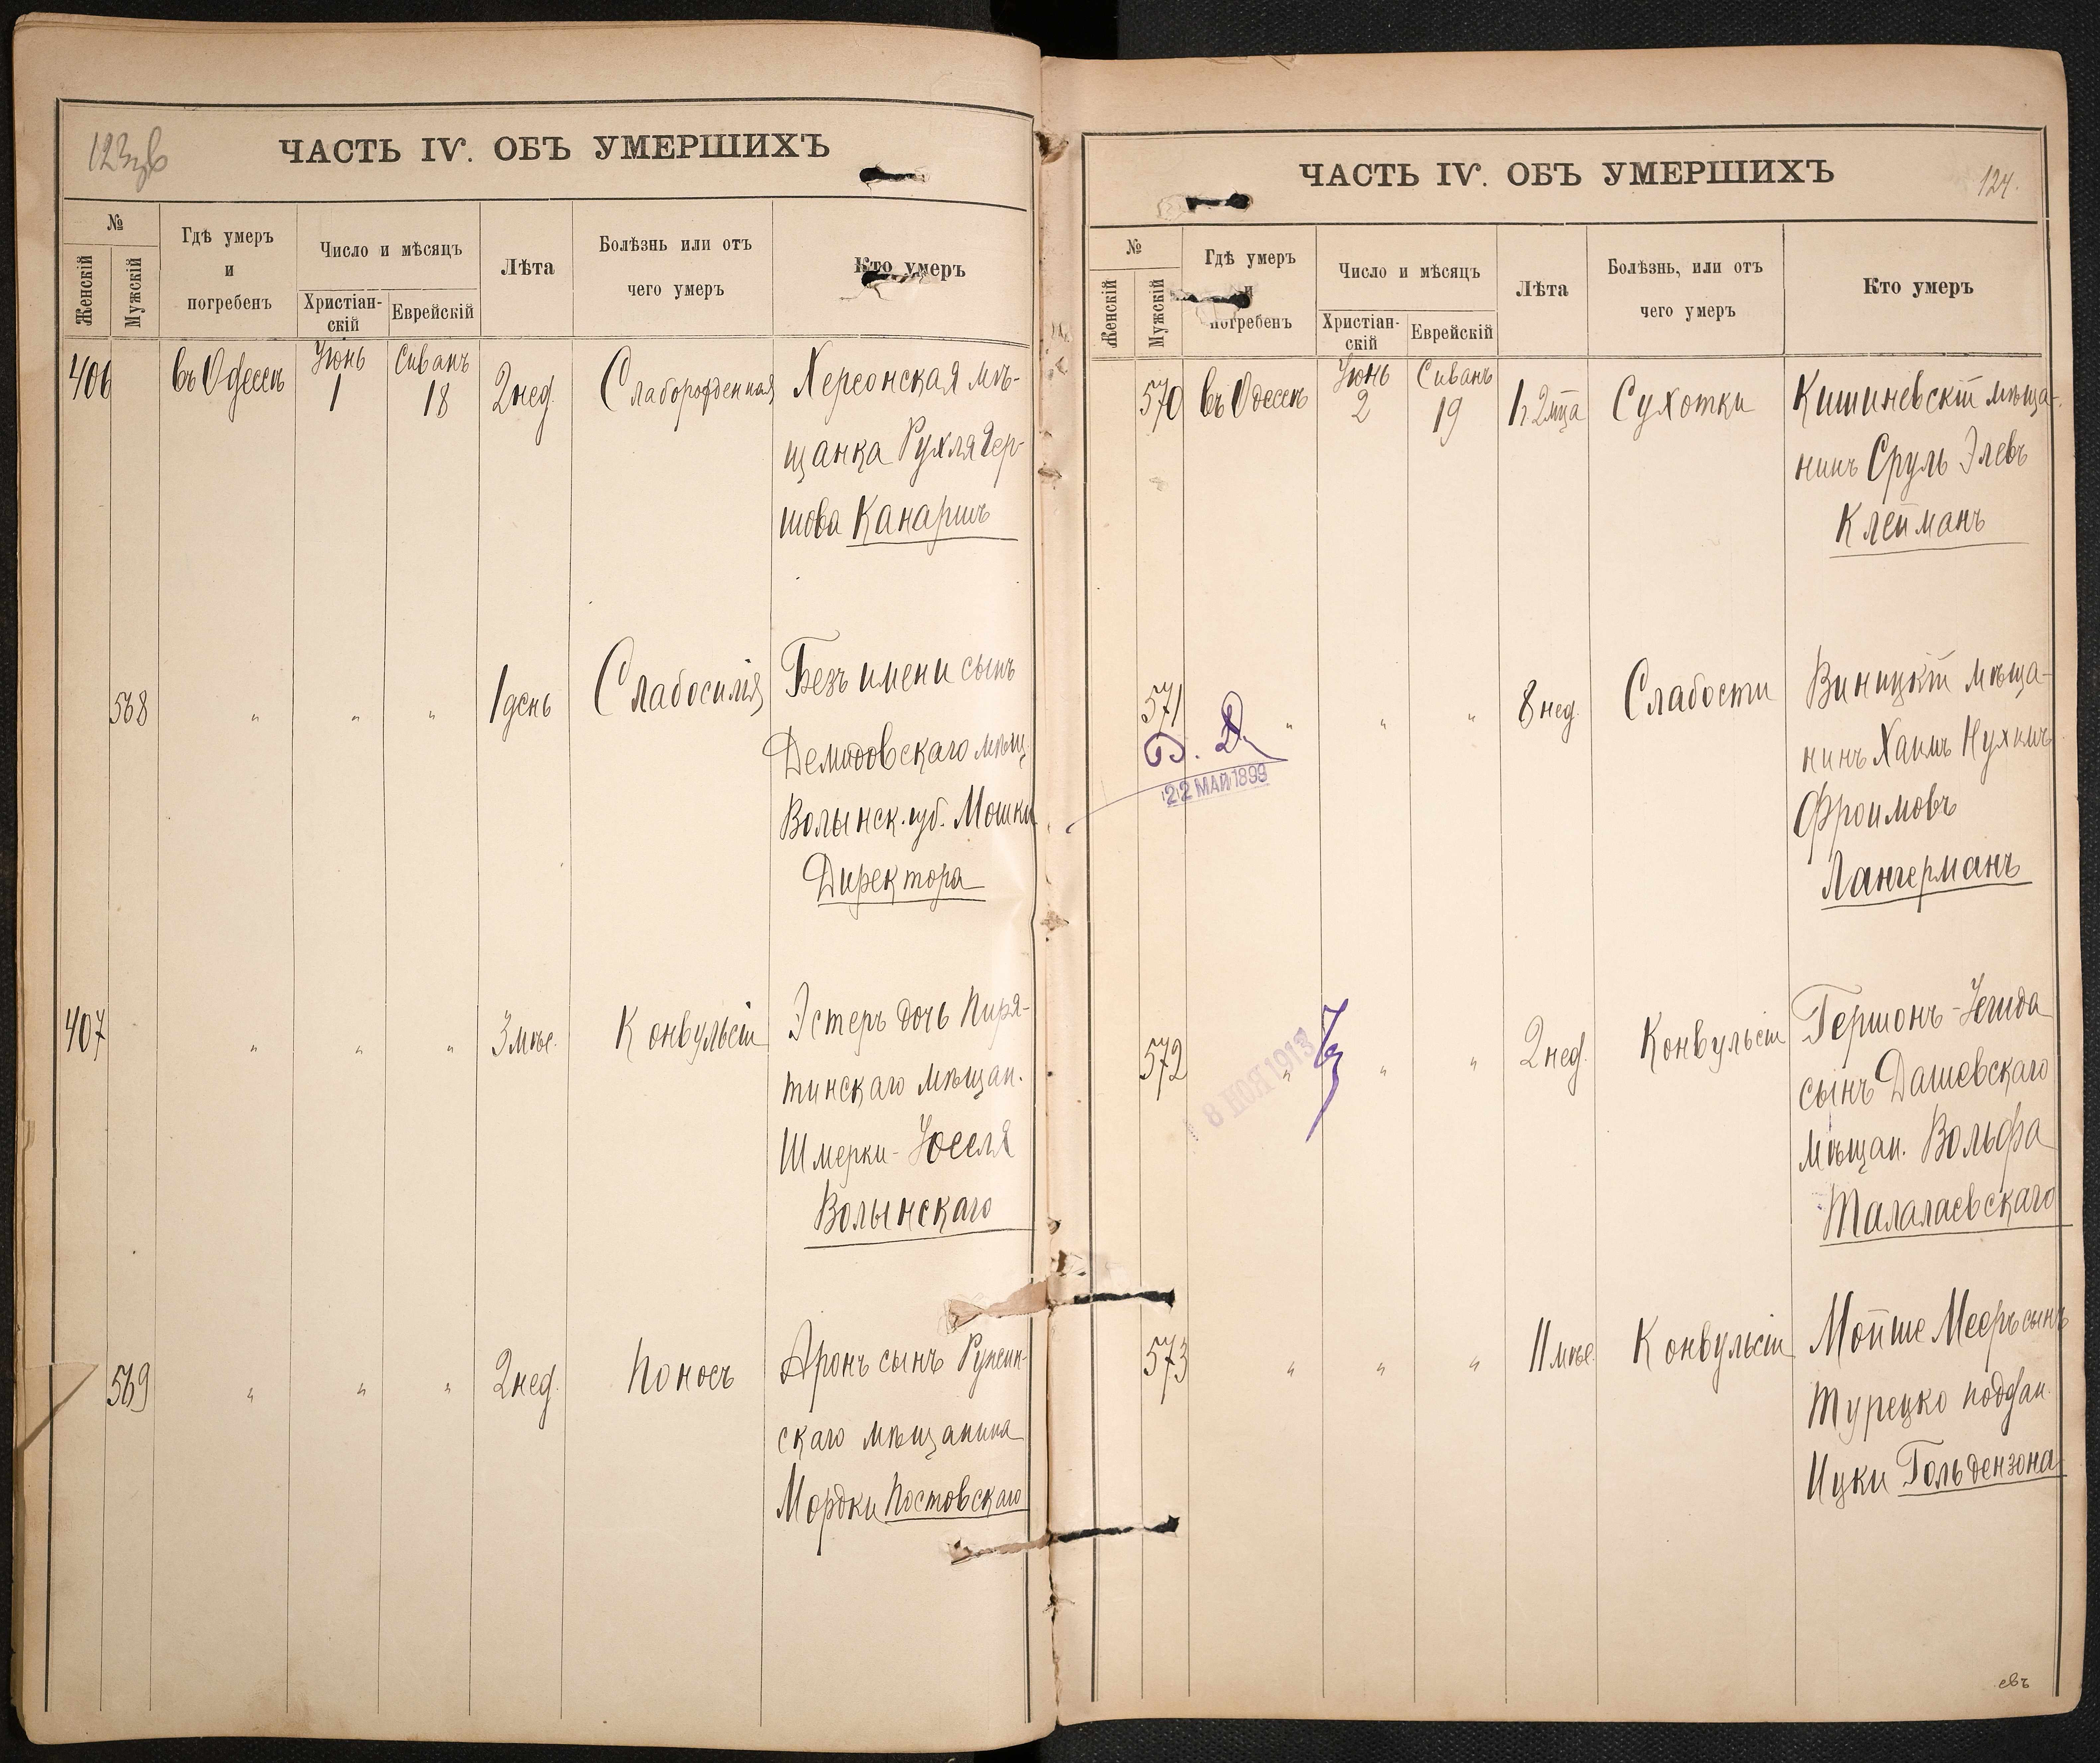 123 об
ЧАСТЬ IV. ОБЪ УМЕРШИХЪ
№
Женскій
Мужскій
Гдѣ умеръ
и
погребенъ
Число и мѣсяцъ
Христіан-
скій
Еврейскій
Лѣта
Болѣзнь или отъ
чего умеръ
Кто умеръ
406 въ Одессѣ Іюнь 1 Сиванъ 18 2 нед. Слаборожденная Херсонская мѣ-
щанка Рухля Гер-
шова Канаршъ
568 " " " 1 день Слабосилія Безъ имени сынъ
Демидовскаго мѣщ.
Волынск. губ. Мошки
Директора
407 " " " 3 мѣс. Конвульсіи Эстеръ дочь Пиря-
тинскаго мѣщан.
Шмерки-Іоселя
Волынскаго
569 " " " 2 нед. Поносъ Аронъ сынъ Ружин-
скаго мѣщанина
Мордки Постовскаго
ЧАСТЬ IV. ОБЪ УМЕРШИХЪ
124.
№
Женскій
Мужскій
Гдѣ умеръ
и
погребенъ
Число и мѣсяцъ
Христіан-
скій
Еврейскій
Лѣта
Болѣзнь, или отъ
чего умеръ
Кто умеръ
570 въ Одессѣ Іюнь 2 Сиванъ 19 1 г. 2 мца Сухотки Кишиневскій мѣща-
нинъ Сруль Элевъ
Клейманъ
571 " " " 8 нед. Слабости Виницкій мѣща-
нинъ Хаимъ Нухимъ
Фроимовъ
Лангерманъ
22 МАЙ 1899
572 " " " 2 нед. Конвульсіи Гершонъ-Іегуда
сынъ Дашевскаго
мѣщан. Вольфа
Талалаевскаго
8 НОЯ 1913
573 " " " 11 мѣс. Конвульсіи Мойше Мееръ сынъ
Турецко поддан.
Ицки Гольдензона
свъ